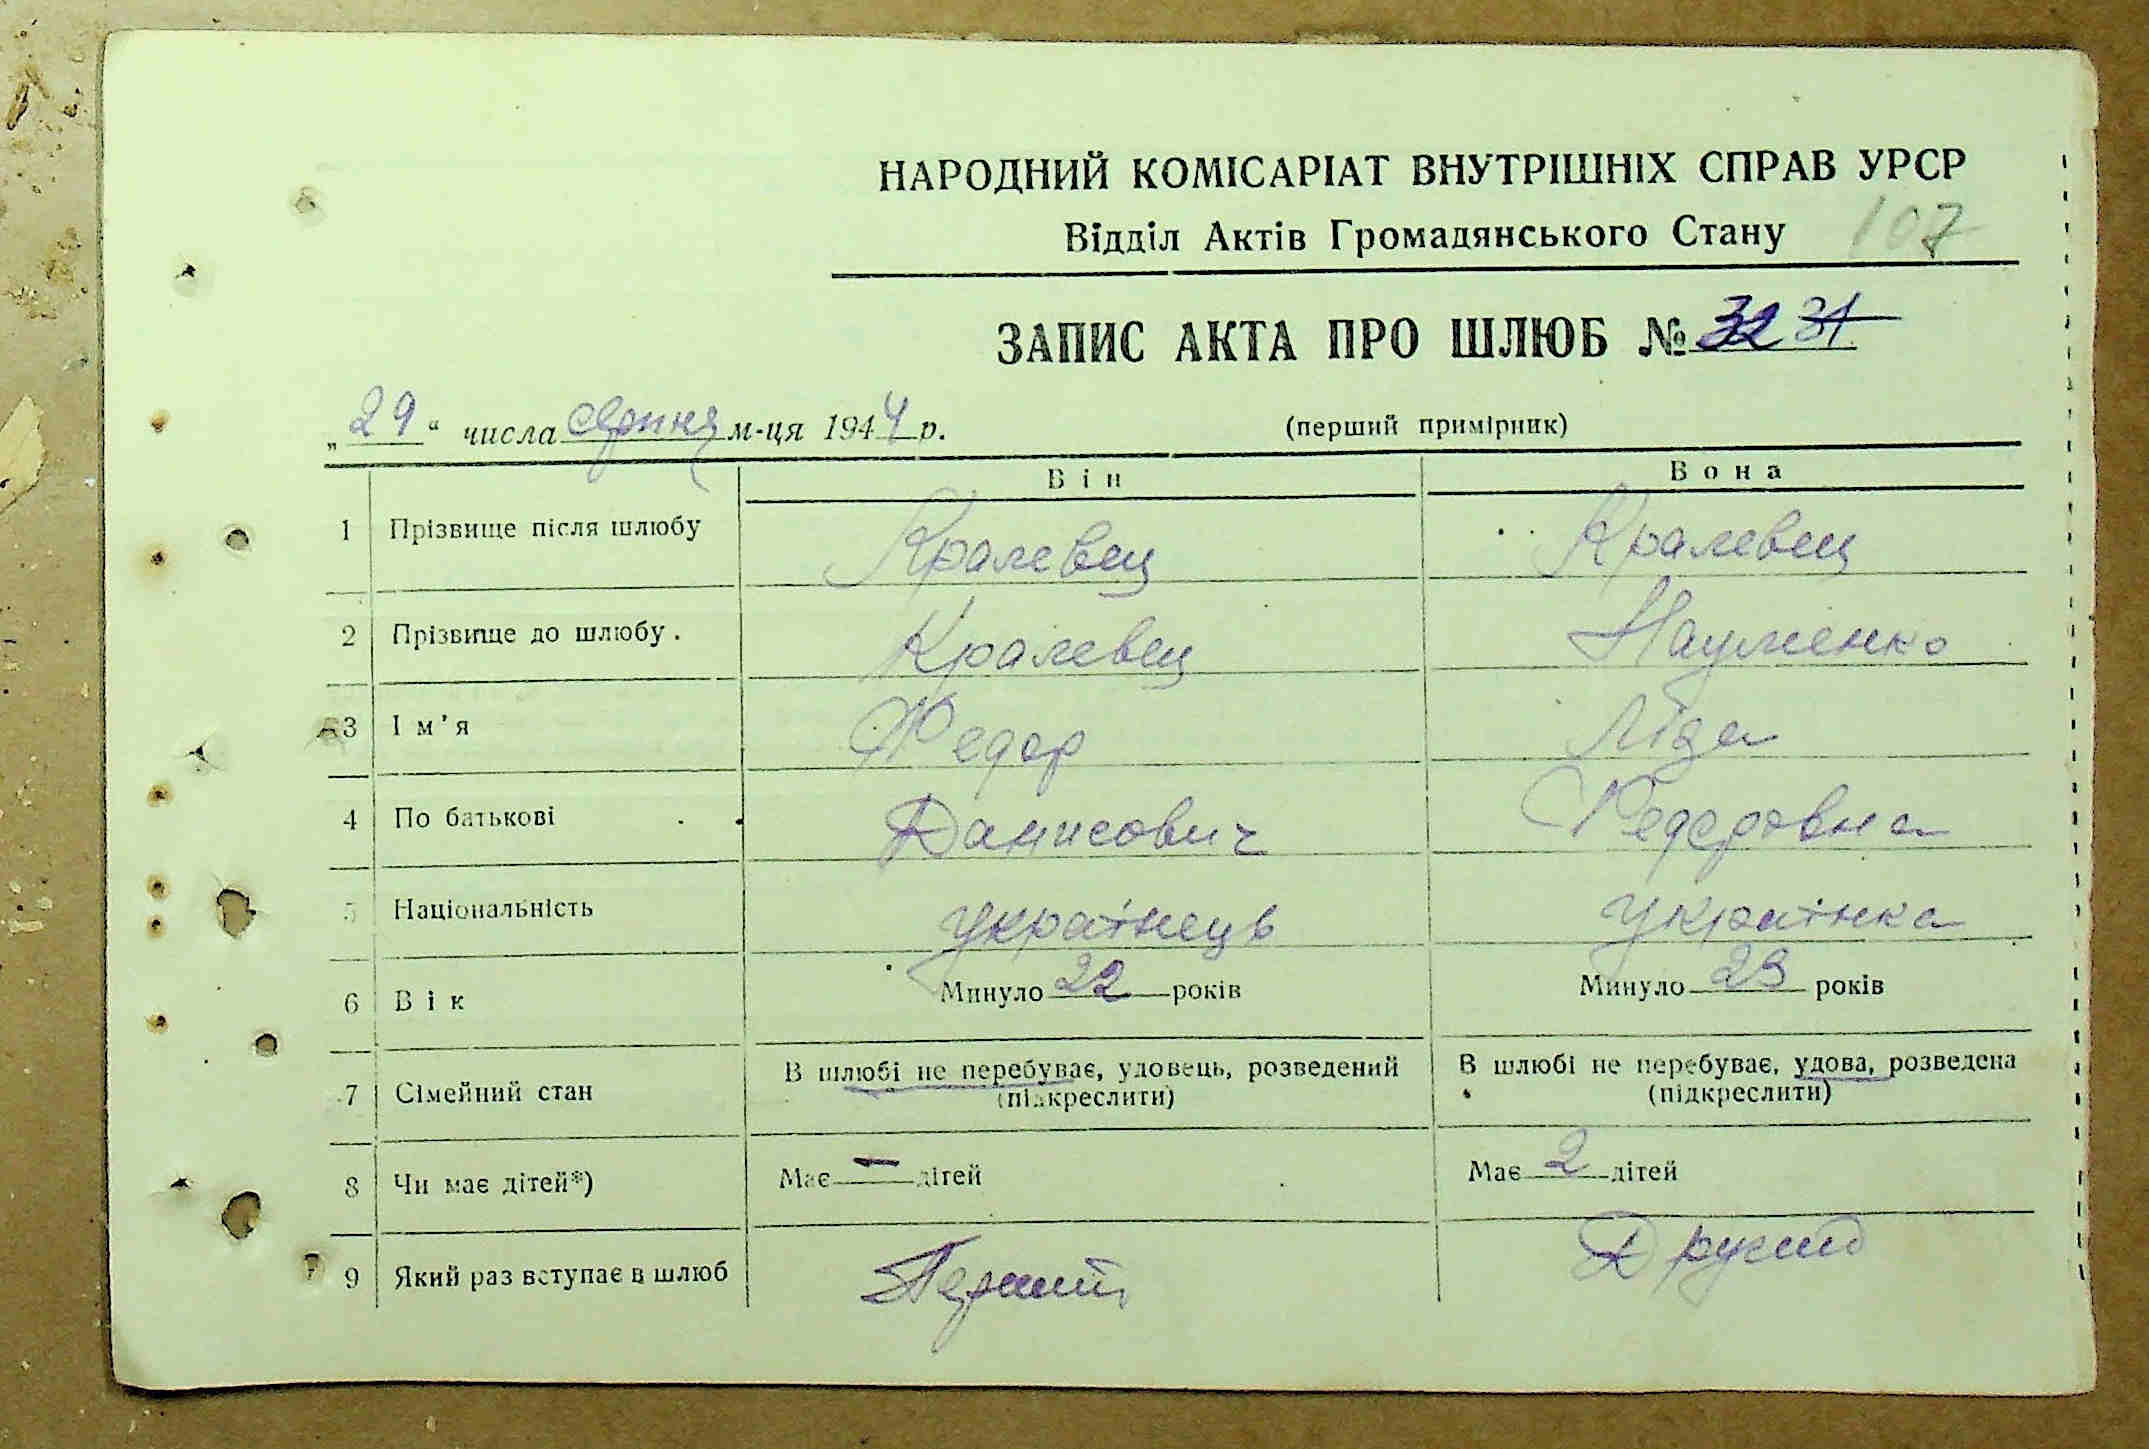 НАРОДНИЙ КОМІСАРІАТ ВНУТРІШНІХ СПРАВ УРСР
Відділ Актів Громадянського Стану 107
ЗАПИС АКТА ПРО ШЛЮБ № 32 31
„29“ числа серпня м-ця 1944 р. (перший примірник)
Він Вона
1 Прізвище після шлюбу Кралевец Кралевец
2 Прізвище до шлюбу. Кралевец Науменко
3 Ім'я Федор Ліда
4 По батькові Данисович Федоровна
5 Національність українець українка
6 Вік Минуло 22 років Минуло 23 років
7 Сімейний стан В шлюбі не перебуває, удовець, розведений (підкреслити) В шлюбі не перебуває, удова, розведена (підкреслити)
8 Чи має дітей*) Має — дітей Має 2 дітей
9 Який раз вступає в шлюб Перший Другий